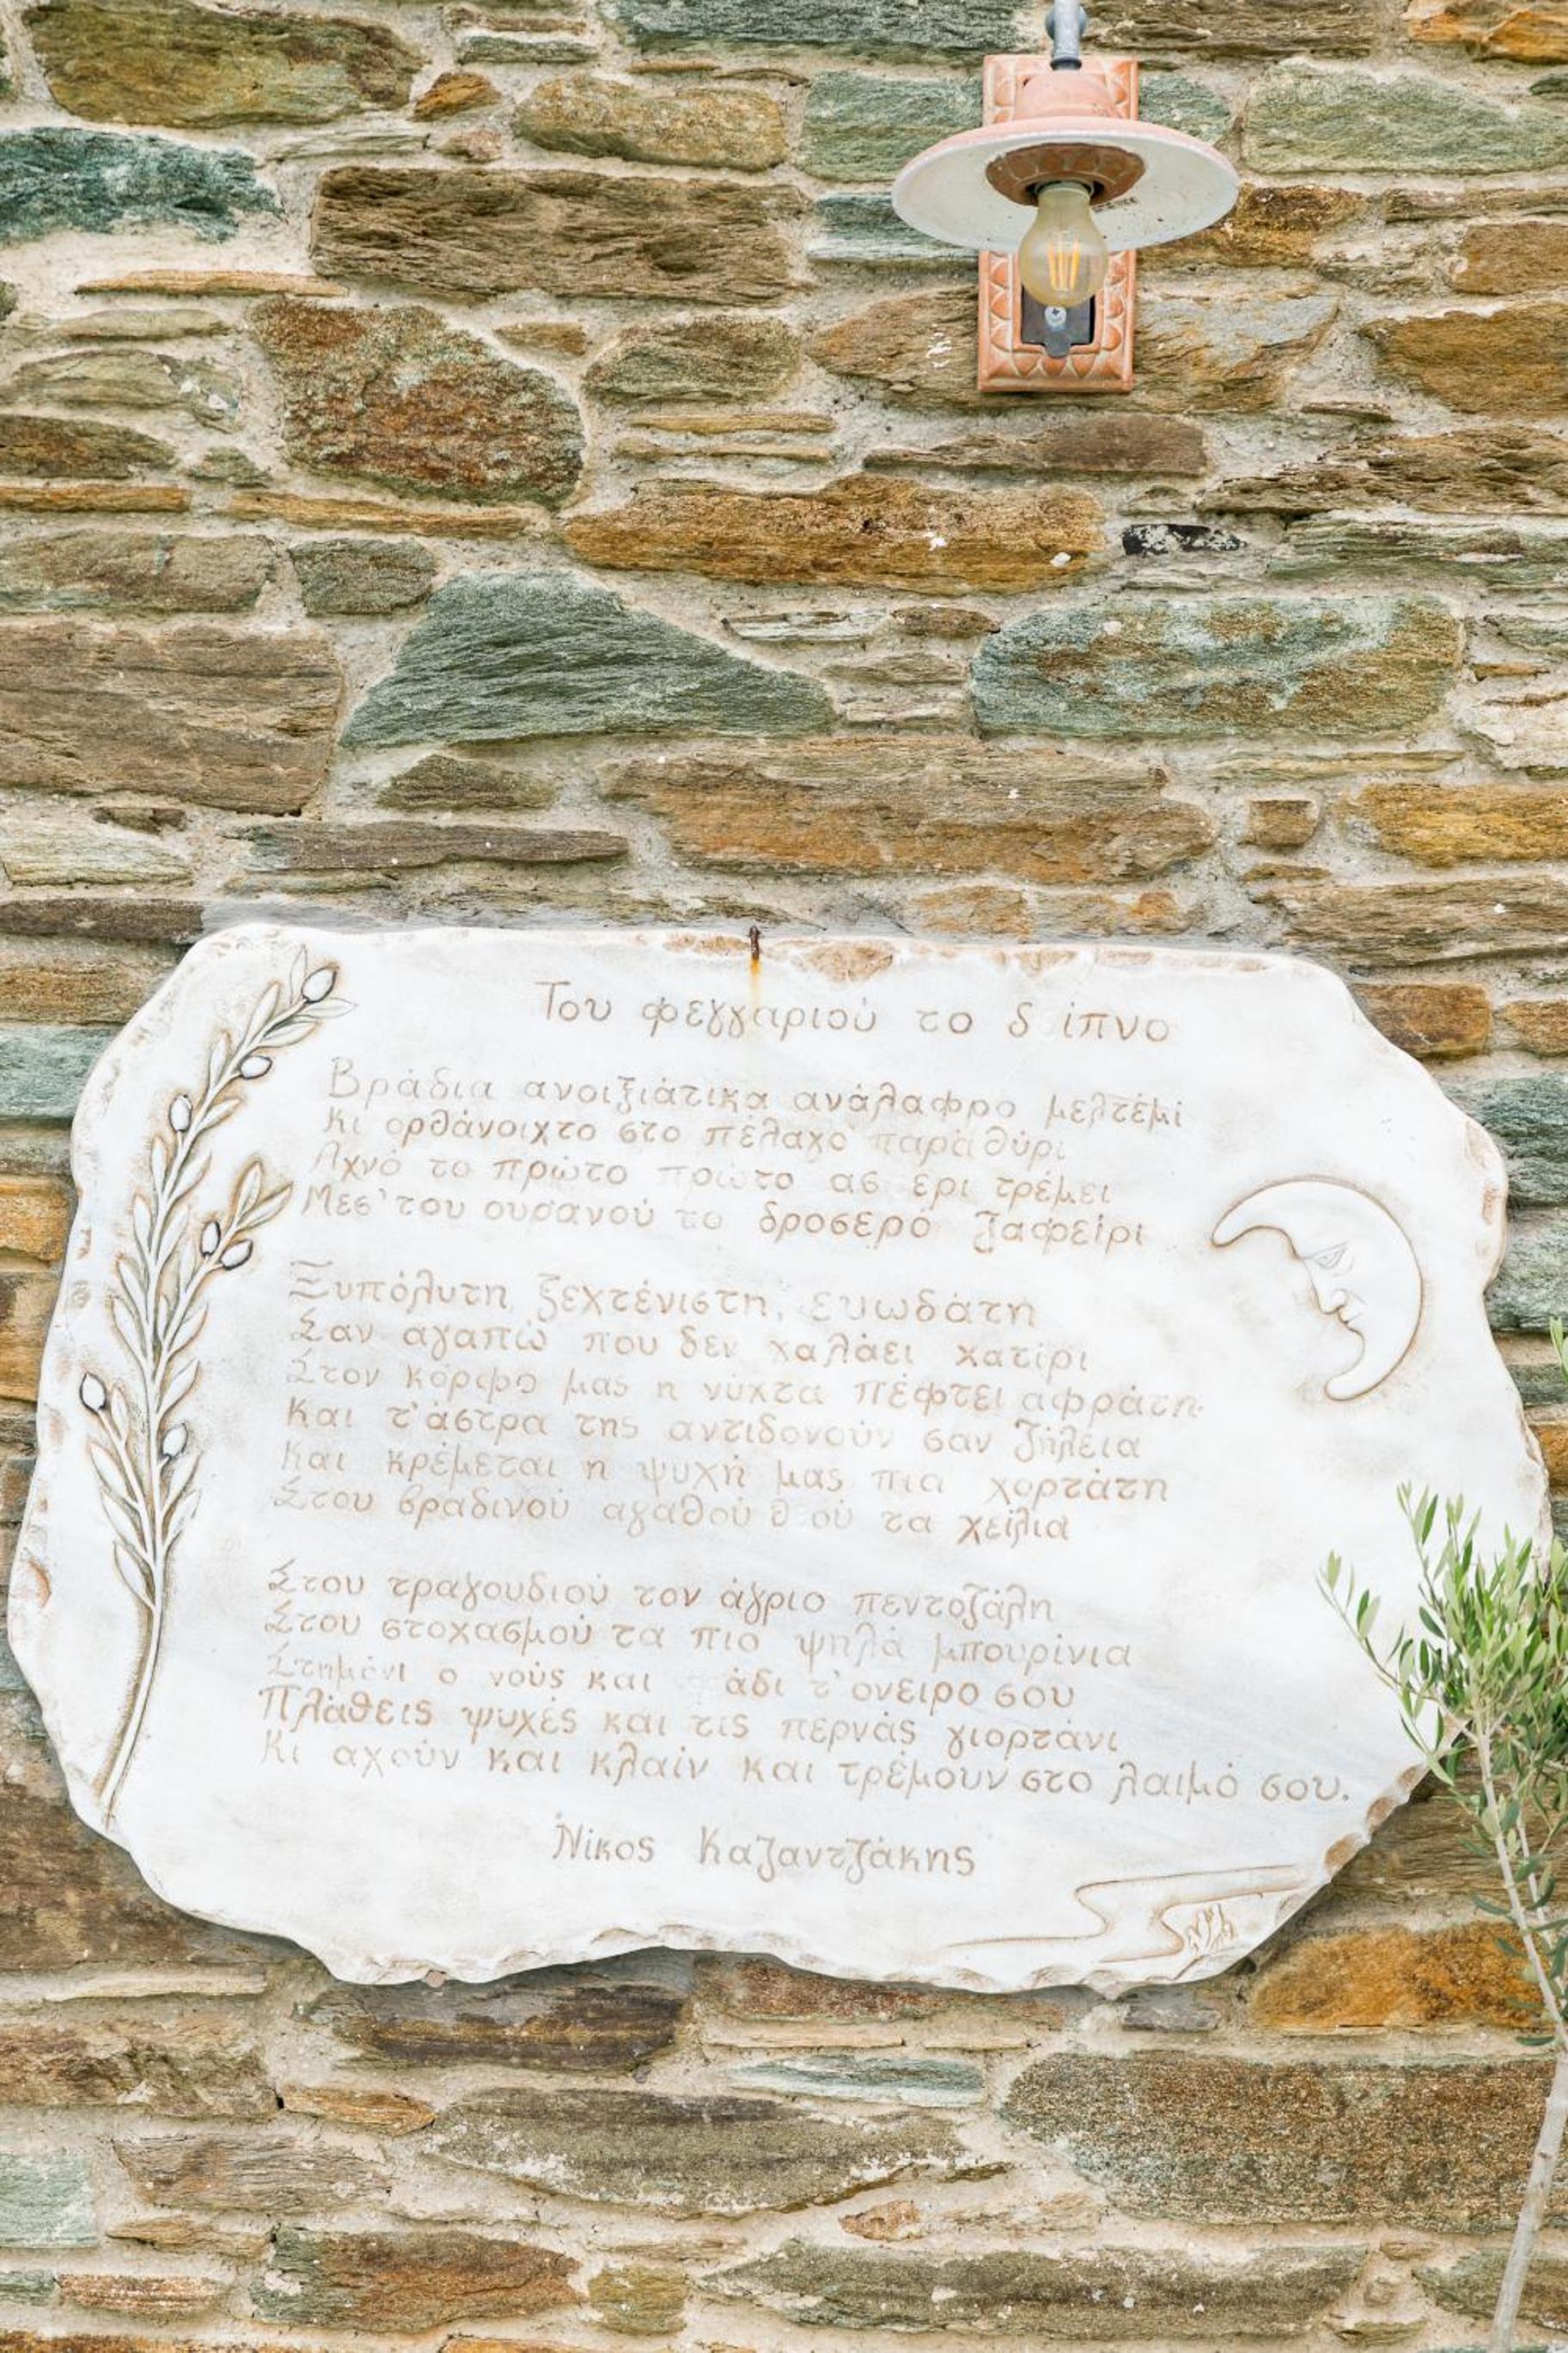 Του φεγγαριού το δ ίπνο
Βράδια ανοιξιάτικα ανάλαφρο μελτέμι
Κι ορθάνοιχτο στο πέλαγο παραθύρι
Αχνό το πρώτο πρώτο ασ έρι τρέμει
Μεσ' του ουρανού το δροσερό ζαφείρι
Ξυπόλυτη, ξεχτένιστη, ευωδάτη
Σαν αγαπώ που δεν χαλάει χατίρι
Στον κόρφο μας η νύχτα πέφτει αφράτη
Και τ'άστρα της αντιδονούν σαν ζήλεια
Και κρέμεται η ψυχή μας πια χορτάτη
Στου βραδινού αγαθού θ ού τα χείλια
Στου τραγουδιού τον άγριο πεντοζάλη
Στου στοχασμού τα πιο ψηλά μπουρίνια
Στημόνι ο νούς και άδι τ'ονειρο σου
Πλάθεις ψυχές και τις περνάς γιορτάνι
Κι αχούν και κλαίν και τρέμουν στο λαιμό σου.
Νίκος Καζαντζάκης